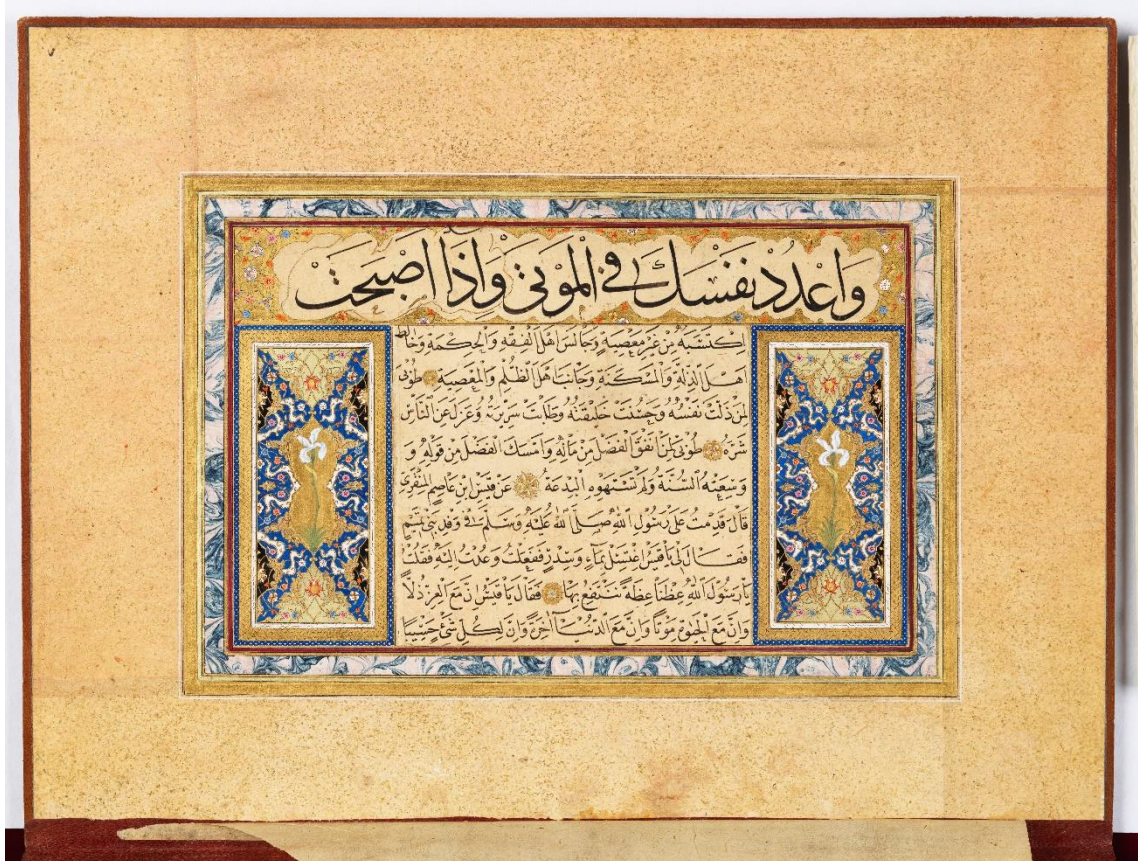 وَاعْدُدْ نَفْسَكَ فِي الْمَوْتَى وَاِذَا اَصْبَحْتَ
اكتسبه مِنْ غَيْرِ مَعْصِيَةٍ وَجَالَسَ اَهْلَ الْفِقْهِ وَالْحِكْمَةِ وَخَالَطَ
اَهْلَ الذِّلَّةِ وَالْمَسْكَنَةِ وَجَانَبَ اَهْلَ الظُّلْمِ وَالْمَعْصِيَةِ طُوبٰى
لِمَنْ ذَلَّتْ نَفْسُهُ وَحَسُنَتْ خَلِيقَتُهُ وَطَابَتْ سَرِيرَتُهُ وَعَزَلَ عَنِ النَّاسِ
شَرَّهُ طُوبٰى لِمَنْ اَنْفَقَ الْفَضْلَ مِنْ مَالِهِ وَاَمْسَكَ الْفَضْلَ مِنْ قَوْلِهِ وَ
وَسِعَتْهُ السُّنَّةُ وَلَمْ تَسْتَهْوِهِ الْبِدْعَةُ عَنْ قَيْسِ ابْنِ عَاصِمِ الْمِنْقَرِيِّ
قَالَ قَدِمْتُ عَلٰى رَسُولِ اللّٰهِ صَلَّى اللّٰهُ عَلَيْهِ وَسَلَّمَ فِي وَفْدِ بَنِي تَمِيمٍ
فَقَالَ لِي يَا قَيْسُ اغْتَسِلْ بِمَاءٍ وَسِدْرٍ فَفَعَلْتُ وَعُدْتُ اِلَيْهِ فَقُلْتُ
يَا رَسُولَ اللّٰهِ عِظْنَا عِظَةً نَنْتَفِعُ بِهَا فَقَالَ يَا قَيْسُ اِنَّ مَعَ الْعِزِّ ذُلًّا
وَاِنَّ مَعَ الْحَيٰوةِ مَوْتًا وَاِنَّ مَعَ الدُّنْيَا اٰخِرَةً وَاِنَّ لِكُلِّ شَيْءٍ حَسِيبًا